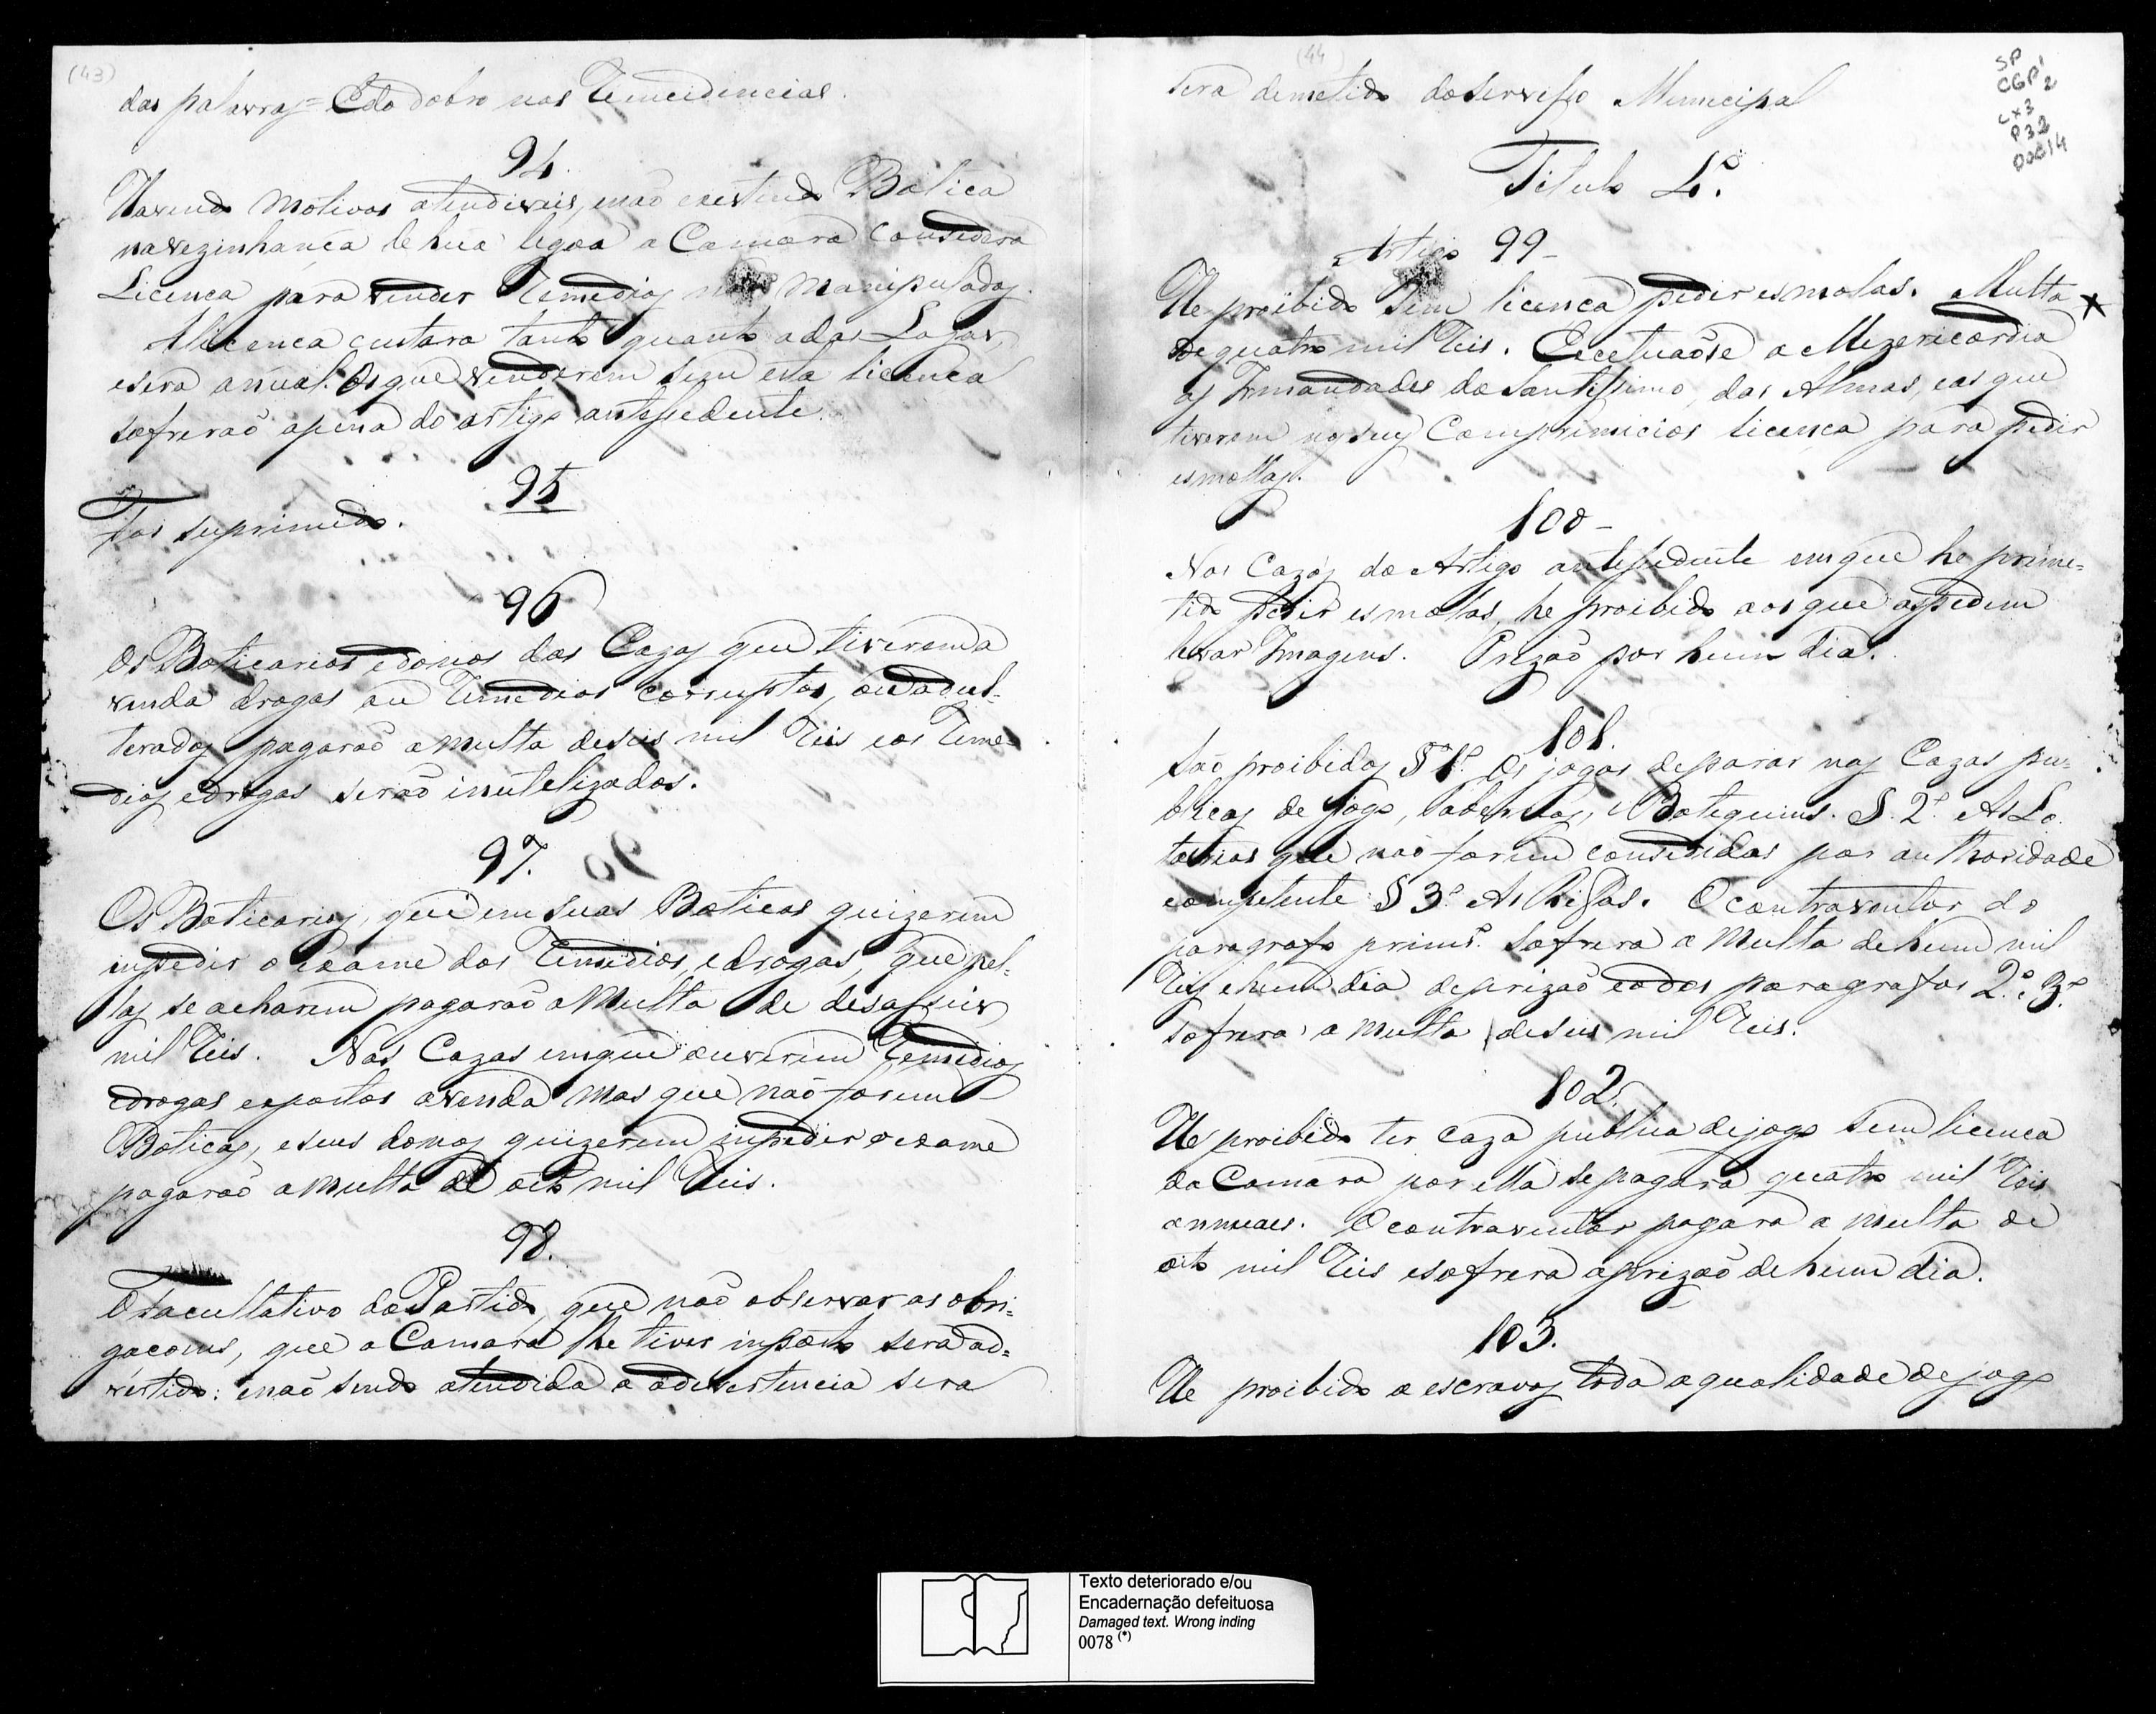 (43)
das palavras = Edo dobro nas Remcidencias.
94.
Havendo motivos atendiveis, enaõ existindo Botica
navezinhança de hua legoa a Camara Consedera
Licenca para vender Remedios não Manipulados.
Alicenca custara tanto quanto adas Lojas,
esera anual. Os que venderem sem esta licenca
sofreraõ apena do artigo antessedente.
95
Foi suprimido.
96
Os Boticarios edonos das Cazas que tiverem a
venda drogas ou Remedios corruptos, ou adul-
terados pagaraõ a multa deseis mil Reis eos Reme-
dios edrogas seraõ inutelizados.
97.
Os Boticarios, que em suas Boticas quizerem
inpedir o exame dos Remedios, edrogas, que nel-
las se acharem pagaraõ a Multa de desasseis
mil Reis. Nas Cazas emque ouverem Remedios
edrogas expostos avenda mas que naõ forem
Boticas, eseus donos quizerem inpedir oexame
pagaraõ a multa de oito mil Reis.
98.
O Facultativo do Partido, que naõ observar as obri-
gacoens, que a Camara lhe tiver inposto sera ad-
vertido: enaõ sendo atendida a adevertencia sera
(44)
sera demetido doservisso Municipal
SP
CGP1
2
cx3
P32
00014
Titulo 4º.
Artigo 99-
He proibido sem licenca pedir esmolas. Multa
de quatro mil Reis. Ececetuaõse a Mizericordia
as Irmandades do Santissimo, das Almas, eas que
tiverem nos seus Comprimicios licença para pedir
esmollas.
100-
Nos Cazos do Artigo antessedente emque he prime-
tido pedir esmolas, he proibido aos que aspedem
levar Imagens. Prizaõ por hum dia.
101.
Saõ proibidos § 1º. Os jogos deparar nas Cazas pu-
blicas de jogo, tabernas, e Botequins. §. 2º. As Lo-
tarias que naõ forem consedidas por authoridade
competente § 3º. As Rifas. O contraventor do
paragrafo primrº. sofrera a Multa de hum mil
Reis ehum dia deprizaõ eodos paragrafos 2º. e 3º.
sofrera a multa deseis mil Reis.
102.
He proibido ter caza publica dejogo sem licenca
da Camara por ella se pagara quatro mil Reis
annuaes. O contraventor pagara a multa de
oito mil Reis esofrera aprizaõ de hum dia.
103.
He proibido a escravos toda aqualidade de jogo
Texto deteriorado e/ou
Encadernação defeituosa
Damaged text. Wrong inding
0078 (*)